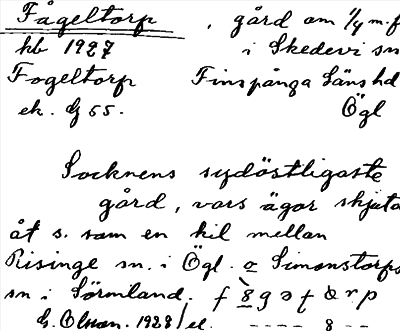 Fågeltorp, gård om 1/4 m.f
kb 1927 i Skedevi sn
Fogeltorp Finspånga Läns hd
ek. G 55. Ögl
Socknens sydöstligaste
gård, vars ägor skjuta
åt s. som en kil mellan
Risinge sn. i Ögl. o Simonstorps
sn i Sörmland.
G. Olson. 1928